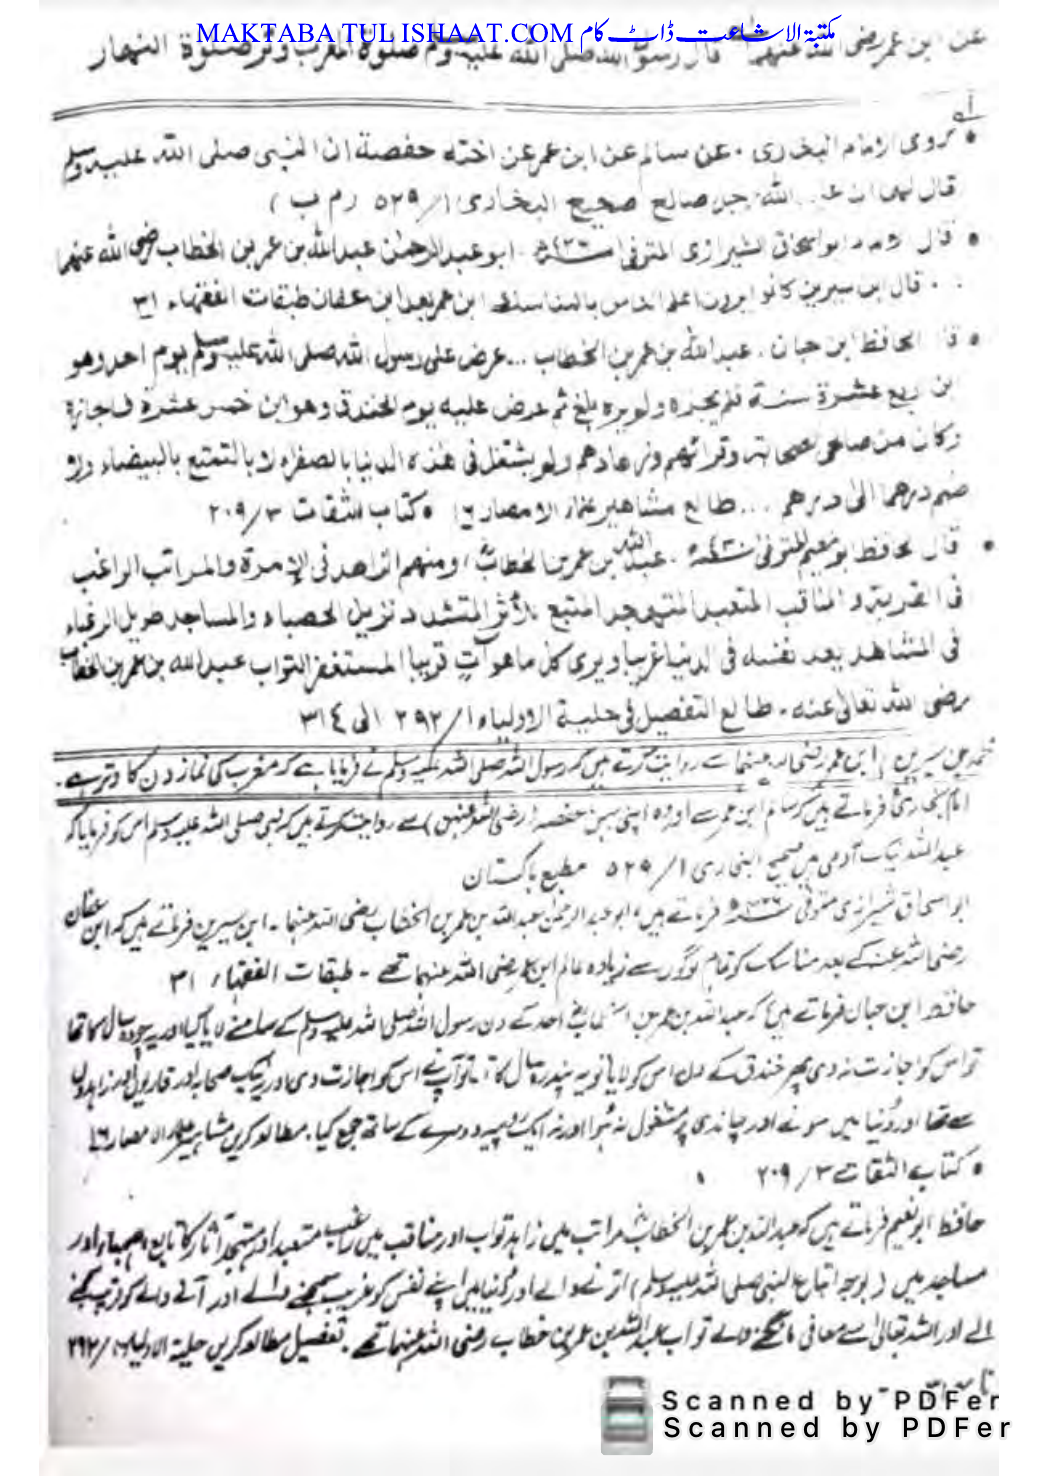 MAKTABA TUL ISHAAT.COM مکتبۃ الاشاعت ڈاٹ کام
عن ابن عمر رضی الله عنهما قال رسول الله صلى الله عليه وسلم صلوة المغرب وتر صلوة النهار
• روى الامام البخاری . عن سالم عن ابن عمر عن اخته حفصة ان النبی صلى الله عليه وسلم
قال لها ان عبد الله رجل صالح صحیح البخاری ١/ ٥٢٩
• قال ابو اسحاق الشیرازی المتوفى ابو عبد الرحمن عبد الله بن عمر بن الخطاب رضی الله عنهما
.. قال ابن سیرین کانوا یرون اعلم الناس بالمناسك ابن عمر بعد ابن عفان طبقات الفقهاء ٣١
• الحافظ ابن حبان . عبد الله بن عمر بن الخطاب ... عرض على رسول الله صلى الله عليه وسلم يوم احد وهو
ابن اربع عشرة سنة فلم يجزه ولم يره بلغ ثم عرض عليه يوم الخندق وهو ابن خمس عشرة فاجازه
وكان من صالحی الصحابة وقرائهم وزهادهم ولم يشتغل فی هذه الدنیا بالصفراء ولا بالتمتع بالبیضاء ولا
ضم درهما الى درهم ... طالع مشاهیر علماء الامصار ١٦ • کتاب الثقات ٣/ ٢٠٩
• قال الحافظ ابو نعیم المتوفى عبد الله بن عمر بن الخطاب ومنهم الزاهد فی الإمرة والمراتب الراغب
فی القربة و المناقب المتعبد المتهجد المتبع للأثر المتشدد نزیل الحصباء والمساجد طویل الرغباء
فی المشاهد یعد نفسه فی الدنیا غریبا ویری کل ما هو آتٍ قریبا المستغفر التواب عبد الله بن عمر بن الخطاب
رضی الله تعالى عنه . طالع التفصیل فی حلیة الاولیاء ١/ ٢٩٢ الى ٣١٤
محمد بن سیرین ابن عمر رضی اللہ عنہما سے روایت کرتے ہیں کہ رسول اللہ صلی اللہ علیہ وسلم نے فرمایا ہے کہ مغرب کی نماز دن کا وتر ہے۔
امام بخاری فرماتے ہیں کہ سالم ابن عمر سے اور وہ اپنی بہن حفصہ (رضی اللہ عنہن) سے روایت کرتے ہیں کہ نبی صلی اللہ علیہ وسلم اس کو فرمایا کہ
عبد اللہ نیک آدمی ہیں صحیح البخاری ١/ ٥٢٩ مطبع پاکستان
ابو اسحاق شیرازی متوفی فرماتے ہیں، ابو عبد الرحمن عبد اللہ بن عمر بن الخطاب رضی اللہ عنہما ۔ ابن سیرین فرماتے ہیں کہ ابن عفان
رضی اللہ عنہ کے بعد مناسک کو تمام لوگوں سے زیادہ عالم ابن عمر رضی اللہ عنہما تھے ۔ طبقات الفقہاء ٣١
حافظ ابن حبان فرماتے ہیں کہ عبد اللہ بن عمر بن الخطاب احد کے دن رسول اللہ صلی اللہ علیہ وسلم کے سامنے لایا گیا اور یہ چودہ سال کا تھا
تو اس کو اجازت نہ دی پھر خندق کے دن اس کو لایا تو یہ پندرہ سال کا تھا تو آپ نے اس کو اجازت دی اور نیک صحابہ اور قاریوں اور زاہدوں
سے تھا اور دنیا میں سونے اور چاندی پر مشغول نہ ہوا اور نہ ایک پیسہ دوسرے کے ساتھ جمع کیا . مطالعہ کریں مشاہیر علماء الامصار ١٦
• کتاب الثقات ٣/ ٢٠٩
حافظ ابو نعیم فرماتے ہیں کہ عبد اللہ بن عمر بن الخطاب مراتب میں زاہد تواب اور مناقب میں راغب متعبد اور متہجد آثار کا تابع حصباء اور
مساجد میں (بوجہ اتباع النبی صلی اللہ علیہ وسلم) اترنے والے اور دنیا میں اپنے نفس کو غریب سمجھنے والے اور آنے والے کو قریب سمجھنے
والے اور اللہ تعالیٰ سے معافی مانگنے والے تواب عبد اللہ بن عمر بن خطاب رضی اللہ عنہما تھے . تفصیل مطالعہ کریں حلیۃ الاولیاء ١/ ٢٩٢
تا
Scanned by PDFer
Scanned by PDFer